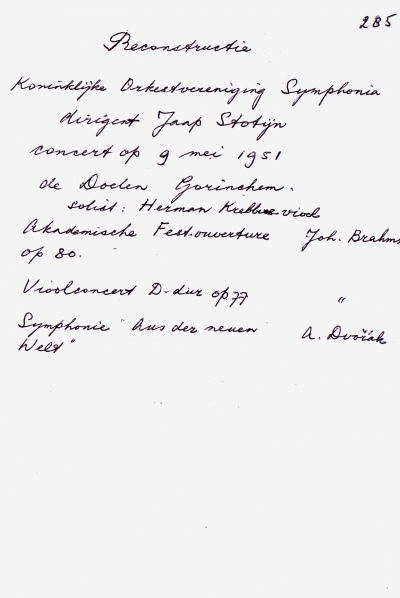 285
Reconstructie
Koninklijke Orkestvereniging Symphonia
dirigent Jaap Stotijn
concert op 9 mei 1951
de Doelen Gorinchem.
solist: Herman Krebbers viool
Akademische Fest.ouverture Joh. Brahms
op 80.
Vioolconcert D-dur op 77 "
Symphonie "Aus der neuen A. Dvořák
Welt"